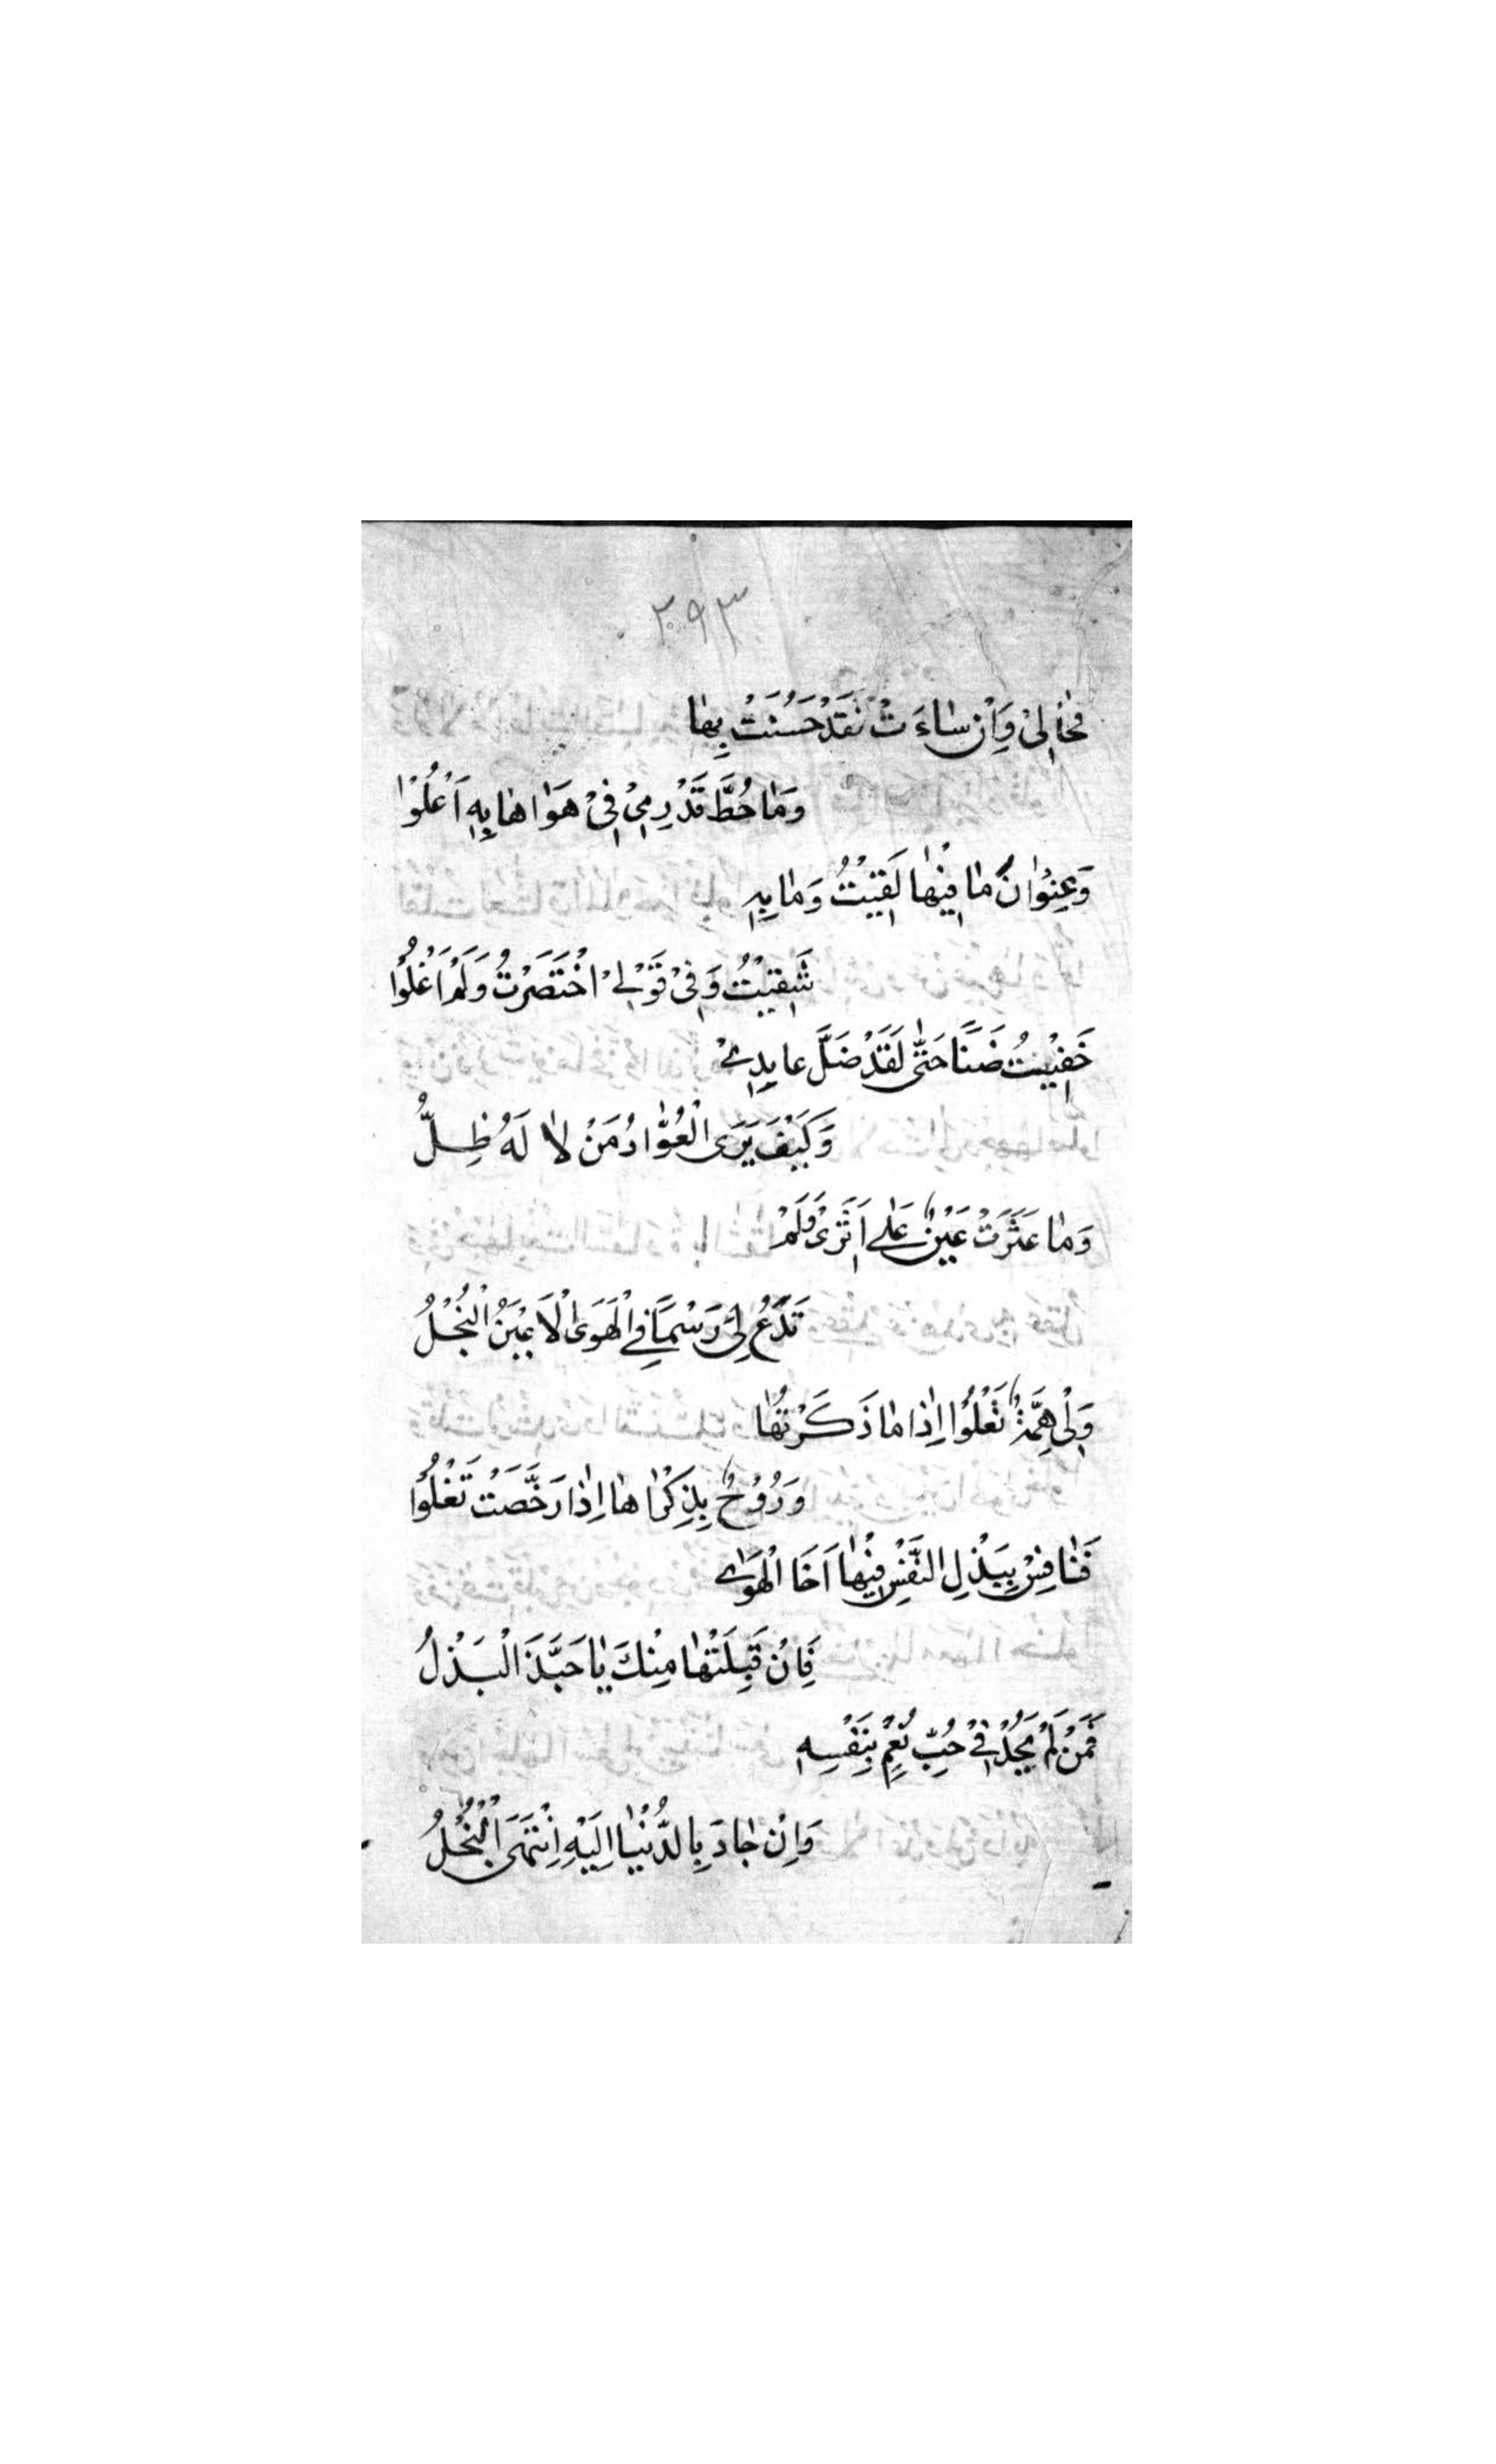 ٢٩٣
فَحٰالِىْ وَاِنْ سٰاءَتْ نَقَدْ حَسُنَتْ بِهٰا
وَمٰا حُطَّ قَدْرِىْ فِىْ هَوٰاهٰا بِهِ اَعْلُوْا
وَعِنْوٰانُ مٰا فِيْهٰا لَقِيْتُ وَمٰا بِهِ
شَقِيْتُ وَفِىْ قَوْلِىْ اخْتَصَرْتُ وَلَمْ اَغْلُوْا
خَفِيْتُ ضَنًا حَتّٰى لَقَدْ ضَلَّ عايِدِىْ
وَكَيْفَ يَرَى الْعُوّٰادُ مَنْ لاٰ لَهُ ظِلُّ
وَمٰا عَثَرَتْ عَيْنٌ عَلٰى اَثَرِىْ وَلَمْ
تَدَعْ لِىَ رَسْمًا فِى الْهَوَى الْاَعْيُنُ النُّجْلُ
وَلِىْ هِمَّةٌ تَعْلُوْا اِذٰا مٰا ذَكَرْتُهٰا
وَرُوْحٌ بِذِكْرٰاهٰا اِذٰا رَخَّصَتْ تَغْلُوْا
فَنٰافِسْ بِبَذْلِ النَّفْسِ فِيْهٰا اَخَا الْهَوٰى
فَاِنْ قَبِلَتْهٰا مِنْكَ يٰا حَبَّذَ الْبَذْلُ
فَمَنْ لَمْ يَجُدْ فِىْ حُبِّ نُعْمٍ بِنَفْسِهِ
وَاِنْ جٰادَ بِالدُّنْيٰا اِلَيْهِ اِنْتَهَى الْبُخْلُ